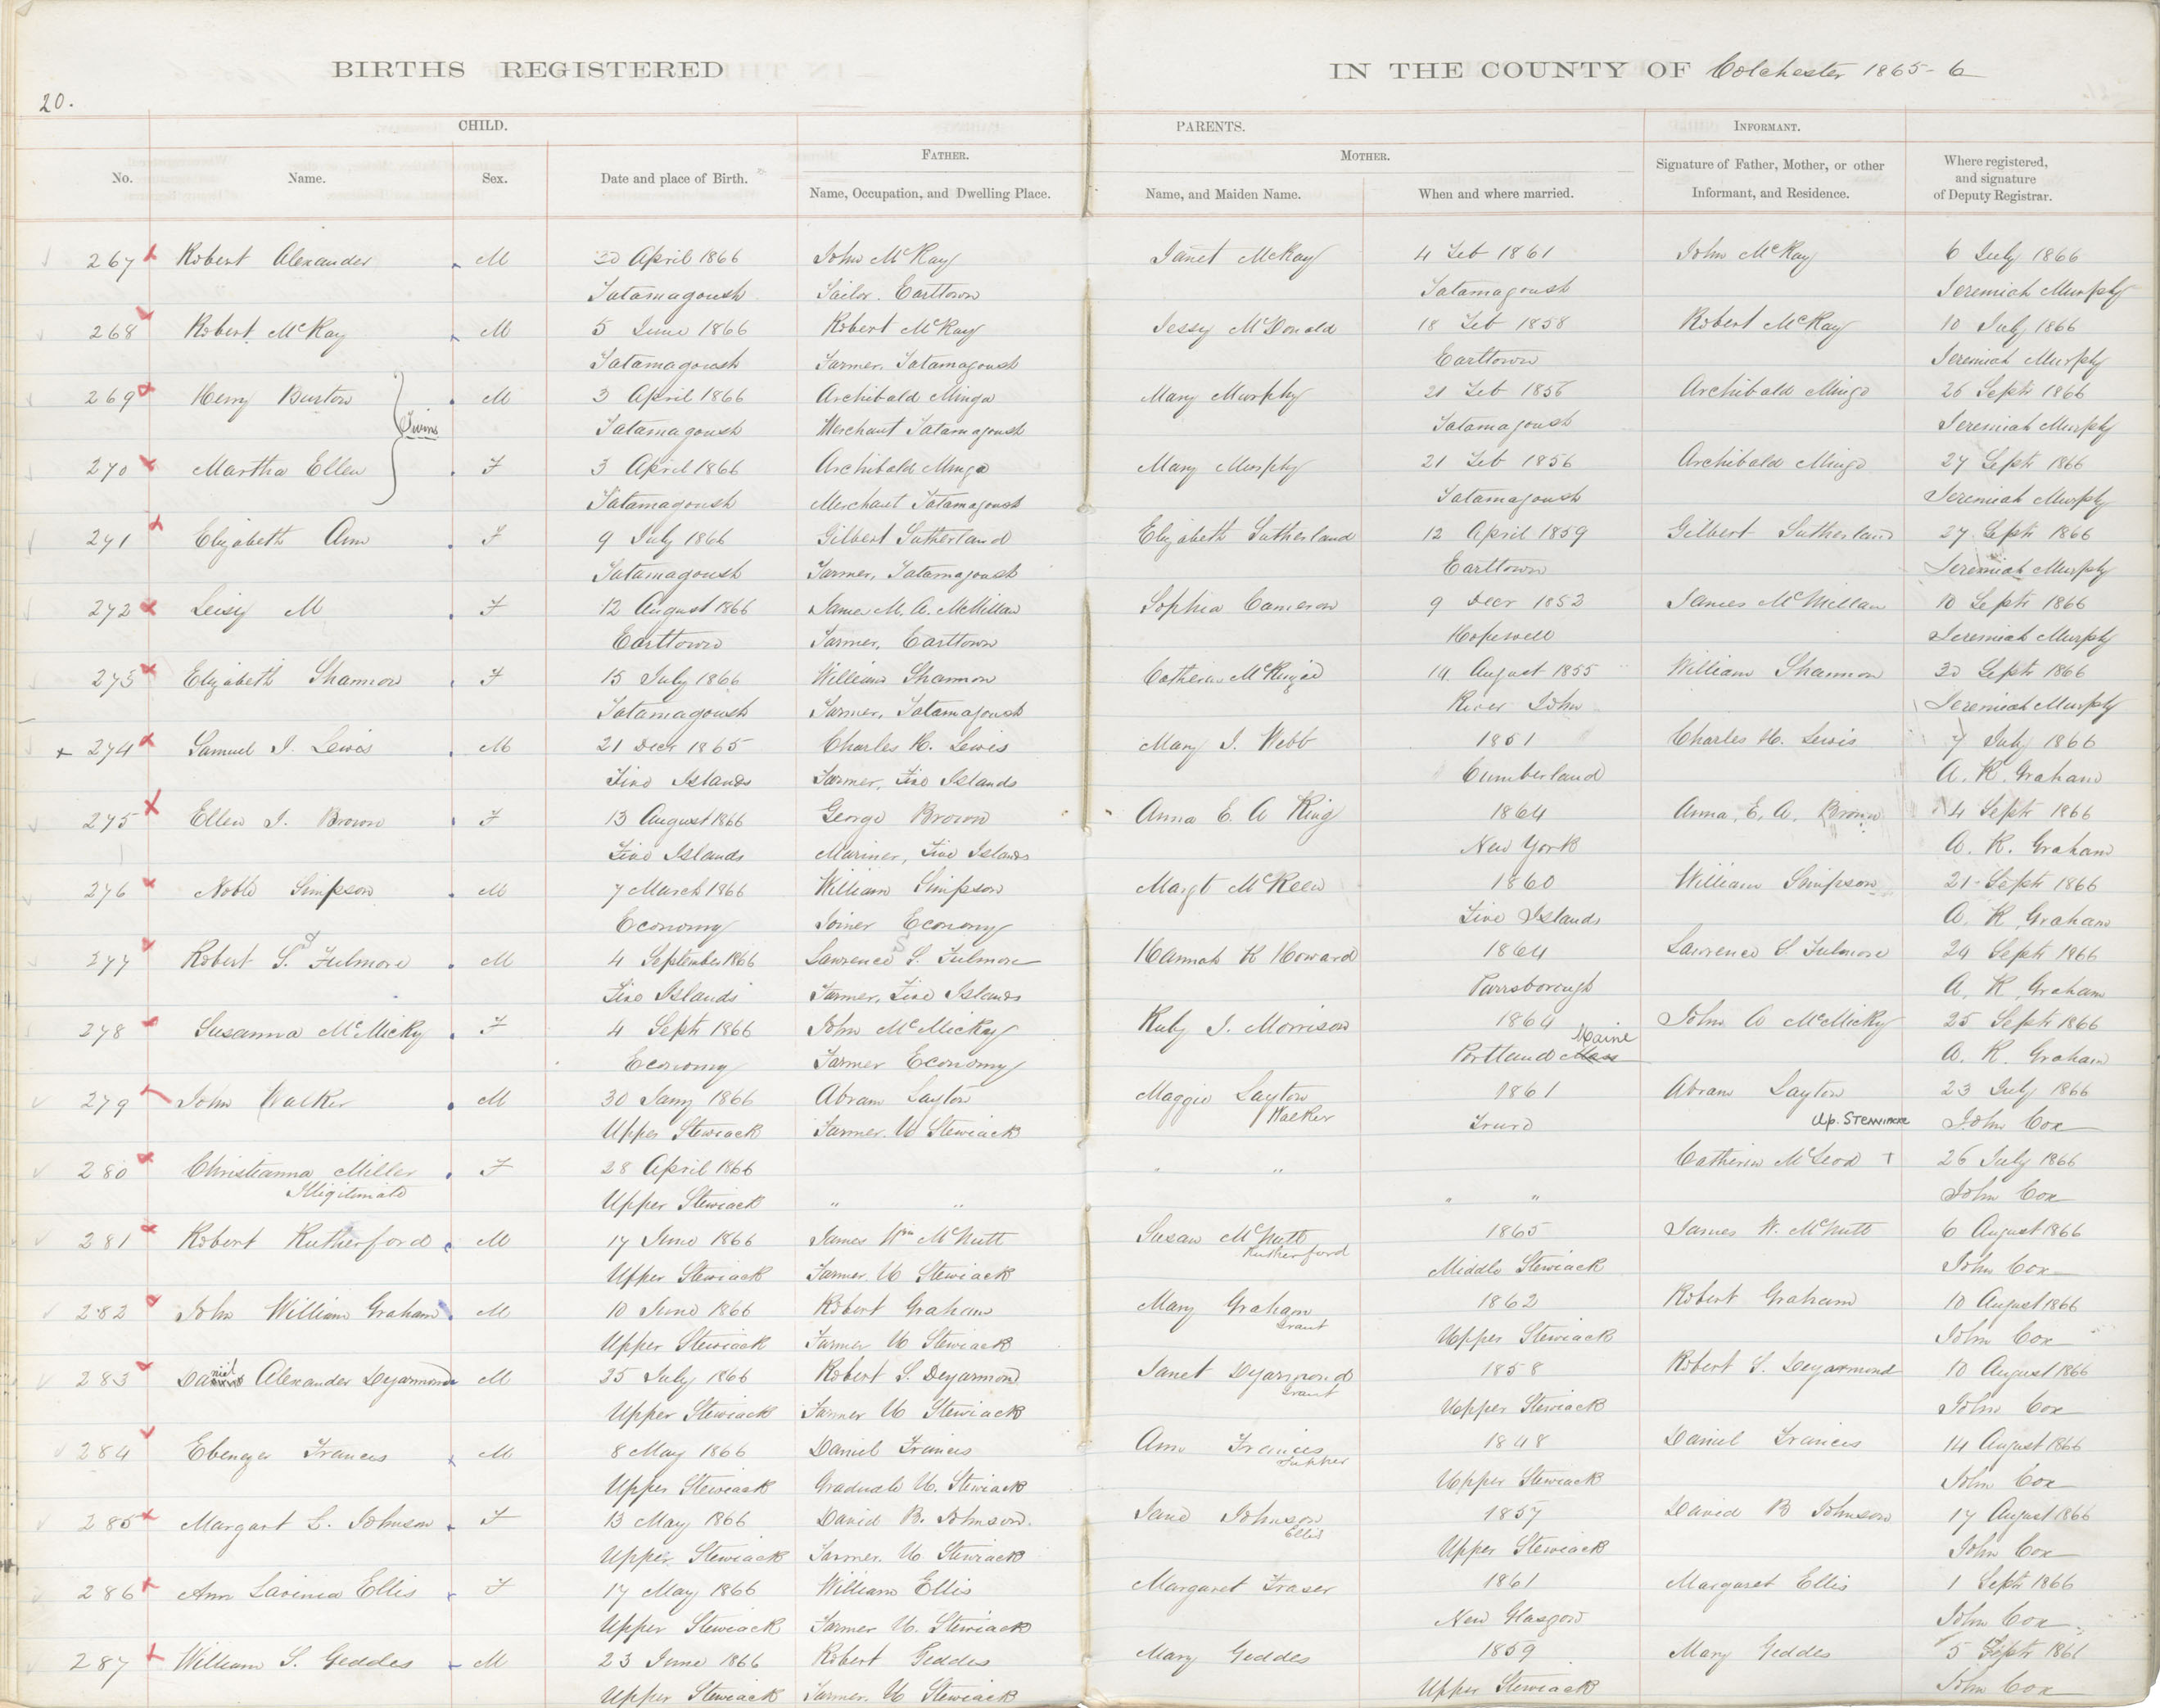 BIRTHS REGISTERED IN THE COUNTY OF Colchester 1865-6
20.
CHILD. PARENTS. INFORMANT.
FATHER. MOTHER.
No. Name. Sex. Date and place of Birth. Name, Occupation, and Dwelling Place. Name, and Maiden Name. When and where married. Signature of Father, Mother, or other Informant, and Residence. Where registered, and signature of Deputy Registrar.
267 Robert Alexander M 30 April 1866 John McKay Janet McKay 4 Feb 1861 John McKay 6 July 1866
Tatamagoush Tailor. Earltown Tatamagoush Jeremiah Murphy
268 Robert McKay M 5 June 1866 Robert McKay Jessy McDonald 18 Feb 1858 Robert McKay 10 July 1866
Tatamagoush Farmer, Tatamagoush Earltown Jeremiah Murphy
269 Henry Burton M 3 April 1866 Archibald Mingo Mary Murphy 21 Feb 1856 Archibald Mingo 26 Sept 1866
Twins
Tatamagoush Merchant Tatamagoush Tatamagoush Jeremiah Murphy
270 Martha Ellen F 3 April 1866 Archibald Mingo Mary Murphy 21 Feb 1856 Archibald Mingo 27 Sept 1866
Tatamagoush Merchant Tatamagoush Tatamagoush Jeremiah Murphy
271 Elizabeth Ann F 9 July 1866 Gilbert Sutherland Elizabeth Sutherland 12 April 1859 Gilbert Sutherland 27 Sept 1866
Tatamagoush Farmer, Tatamagoush Earltown Jeremiah Murphy
272 M F 12 August 1866 James M. A. McMillan Sophia Cameron 9 Decr 1852 James McMillan 10 Sept 1866
Earltown Farmer, Earltown Hopewell Jeremiah Murphy
273 Elizabeth Shannon F 15 July 1866 William Shannon Catherine McKenzie 14 August 1855 William Shannon 20 Sept 1866
Tatamagoush Farmer, Tatamagoush River John Jeremiah Murphy
x 274 Samuel J. Lewis M 21 Decr 1865 Charles H. Lewis Mary J. Webb 1851 Charles H. Lewis 7 July 1866
Five Islands Farmer, Five Islands Cumberland A. K. Graham
275 Ellen J. Brown F 13 August 1866 George Brown Anna E. A King 1864 Anna, E, A. Brown 4 Sept 1866
Five Islands Mariner, Five Islands New York A. K. Graham
276 Noble Simpson M 7 March 1866 William Simpson Margt McKeen 1860 William Simpson 21 Sept 1866
Economy Joiner Economy Five Islands A. K. Graham
277 Robert S. Fulmore M 4 September 1866 Lawrence S. Fulmore Hannah K Howard 1864 Lawrence S. Fulmore 24 Sept 1866
Five Islands Farmer, Five Islands Parrsborough A. K. Graham
278 Susanna McMicky F 4 Sept 1866 John McMicky Ruby J. Morrison 1864 John A McMicky 25 Sept 1866
Economy Farmer Economy Portland Mass Maine A. K. Graham
279 John Walker M 30 Jany 1866 Abram Layton Maggie Layton 1861 Abram Layton 23 July 1866
Walker
Upper Stewiack Farmer. U Stewiack Truro Up. STEWIACKE John Cox
280 Christianna Miller F 28 April 1866 " " Catherine McLeod + 26 July 1866
Illigitimate
Upper Stewiack " " " " John Cox
281 Robert Rutherford M 17 June 1866 James Wm McNutt Susan McNutt 1865 James W. McNutt 6 August 1866
Rutherford
Upper Stewiack Farmer. U Stewiack Middle Stewiack John Cox
282 John William Graham M 10 June 1866 Robert Graham Mary Graham 1862 Robert Graham 10 August 1866
Grant
Upper Stewiack Farmer U Stewiack Upper Stewiack John Cox
283 Daniel Alexander Deyarmond M 25 July 1866 Robert S. Deyarmond Janet Deyarmond 1858 Robert S. Deyarmond 10 August 1866
Grant
Upper Stewiack Farmer U Stewiack Upper Stewiack John Cox
284 Ebenezer Francis M 8 May 1866 Daniel Francis Ann Francis 1848 Daniel Francis 14 August 1866
Tupper
Upper Stewiack Graduate U. Stewiack Upper Stewiack John Cox
285 Margart L. Johnson F 13 May 1866 David B. Johnson. Jane Johnson 1857 David B Johnson 17 August 1866
Ellis
Upper Stewiack Farmer. U Stewiack Upper Stewiack John Cox
286 Ann Lavinia Ellis F 17 May 1866 William Ellis Margaret Fraser 1861 Margaret Ellis 1 Sept 1866
Upper Stewiack Farmer U. Stewiack New Glasgow John Cox
287 William S. Geddes M 23 June 1866 Robert Geddes Mary Geddes 1859 Mary Geddes 5 Sept 1866
Upper Stewiack Farmer. U Stewiack Upper Stewiack John Cox